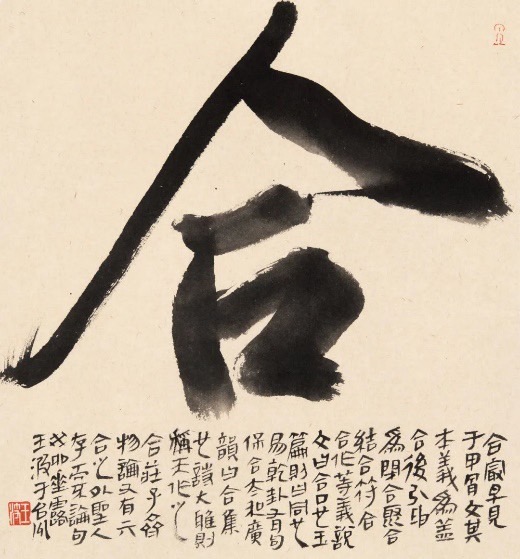 合
合最早見
于甲骨文其
本義為蓋
合後引申
為閉合聚合
結合符合
合作等義説
文曰合也玉
篇則曰同也
易乾卦有句
保合太和廣
韻曰合集
也詩大雅則
稱天作之
合莊子齊
物論又有六
合之外聖人
存而不論句
癸卯露
王波于台州
王波